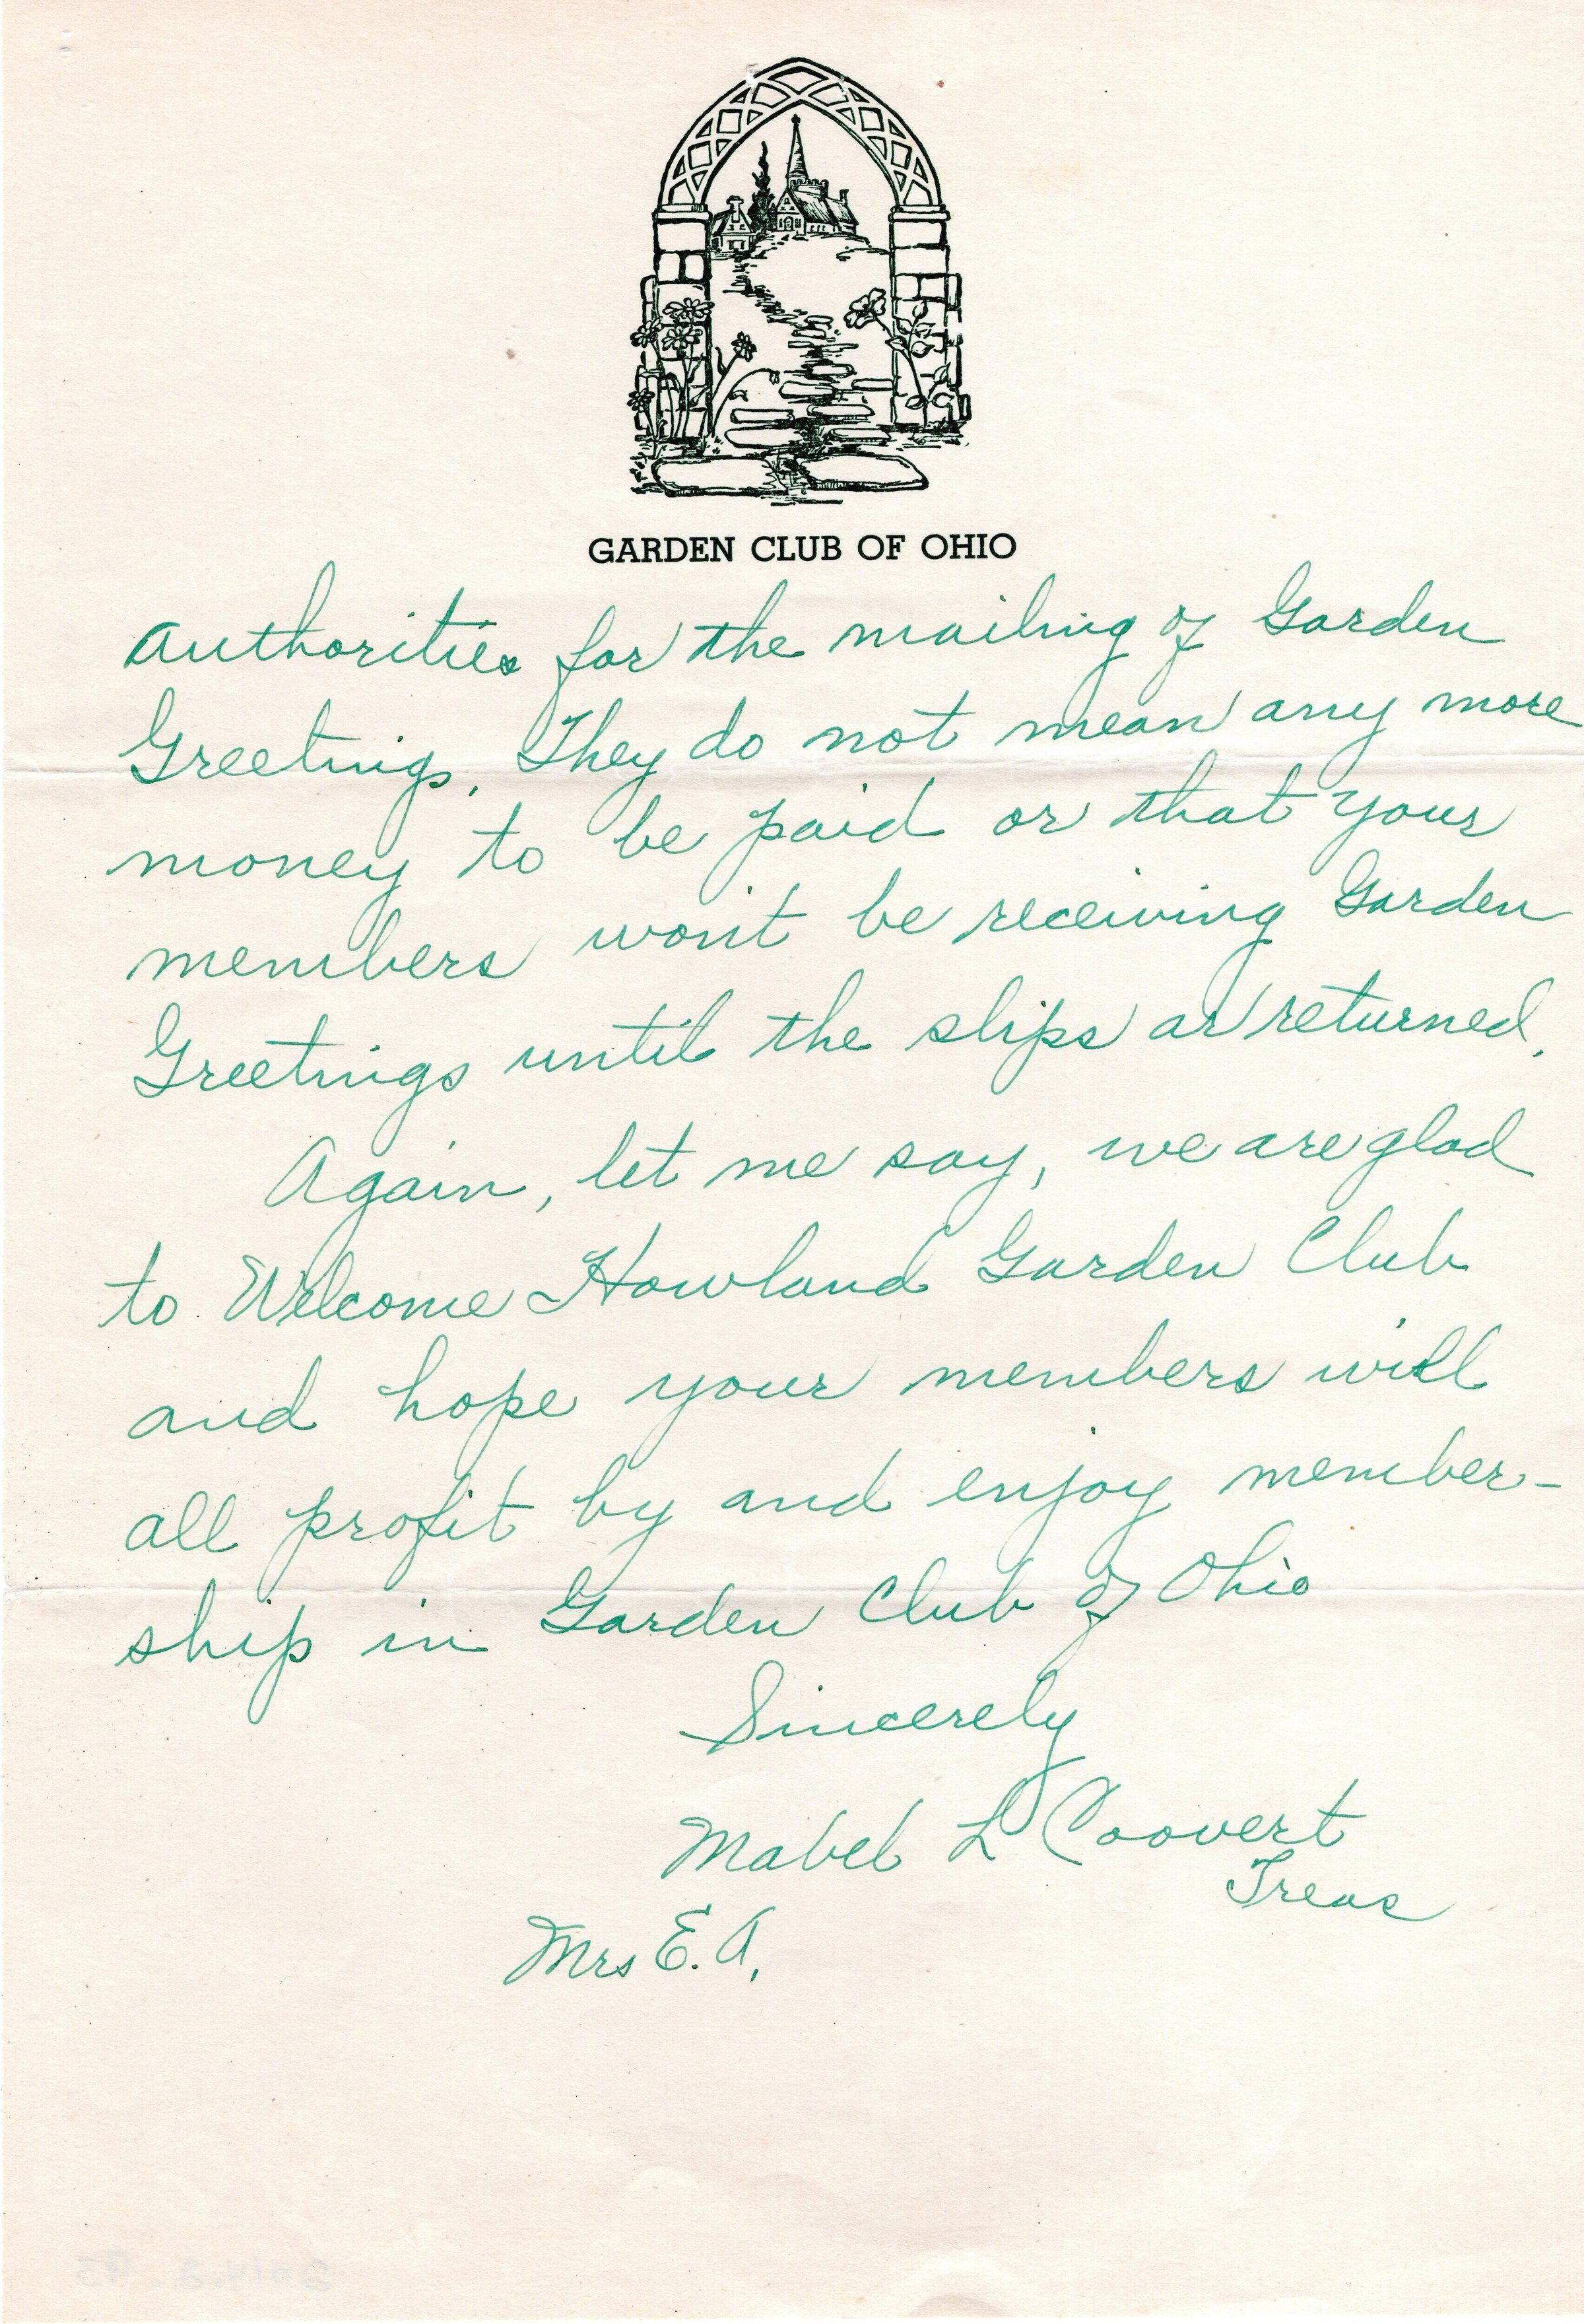 GARDEN CLUB OF OHIO
authorities for the mailing of Garden
Greetings. They do not mean any more
money to be paid or that your
members won't be receiving Garden
Greetings until the slips ar returned.
Again, let me say, we are glad
to Welcome Howland Garden Club
and hope your members will
all profit by and enjoy member-
ship in Garden Club of Ohio
Sincerely
Mabel L Coovert
Treas
Mrs E. A.